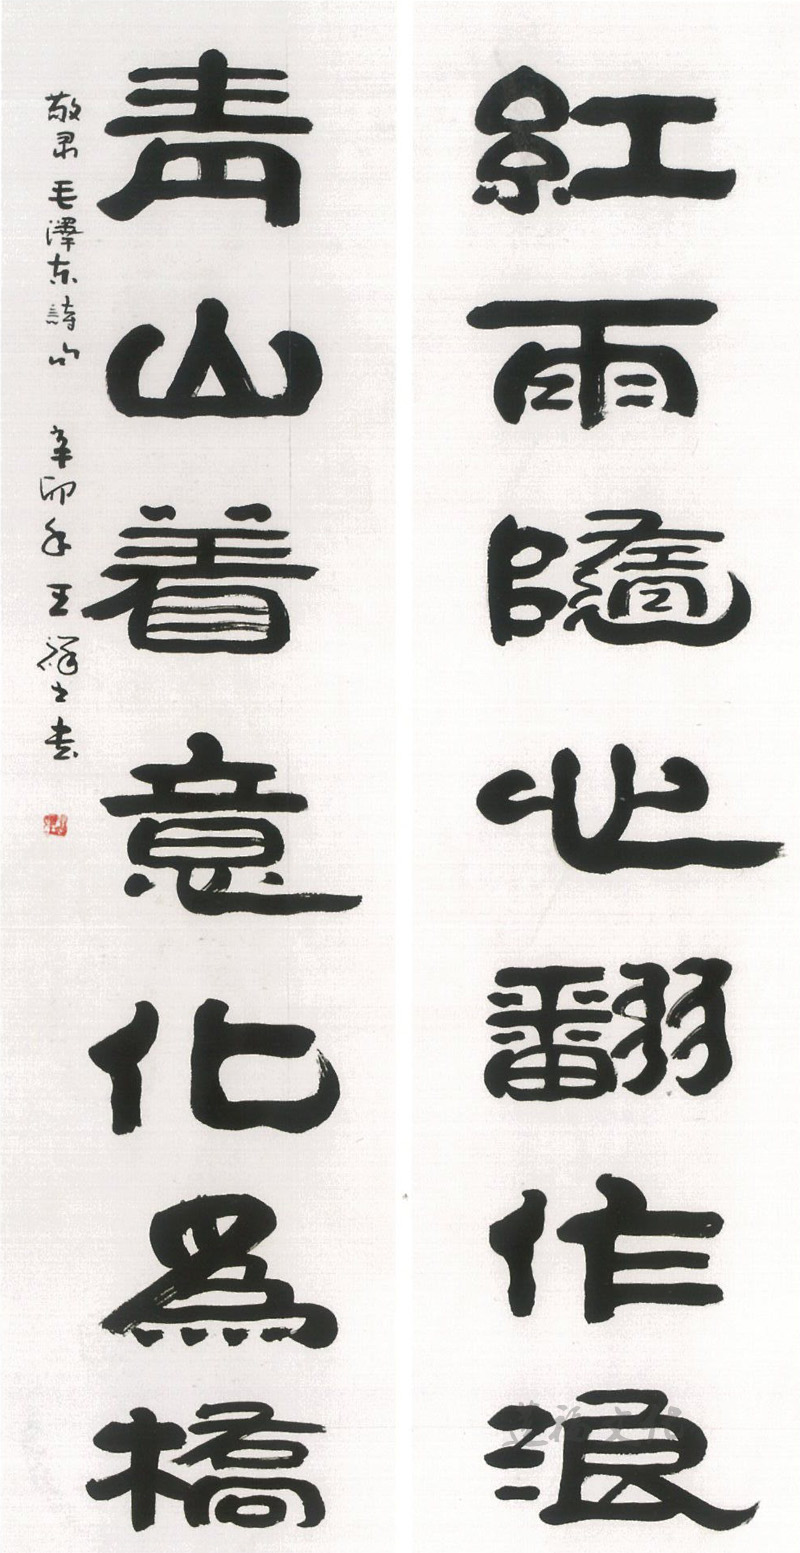 紅雨隨心翻作浪
青山着意化為橋
敬录毛澤东詩句 辛卯年王祥之书